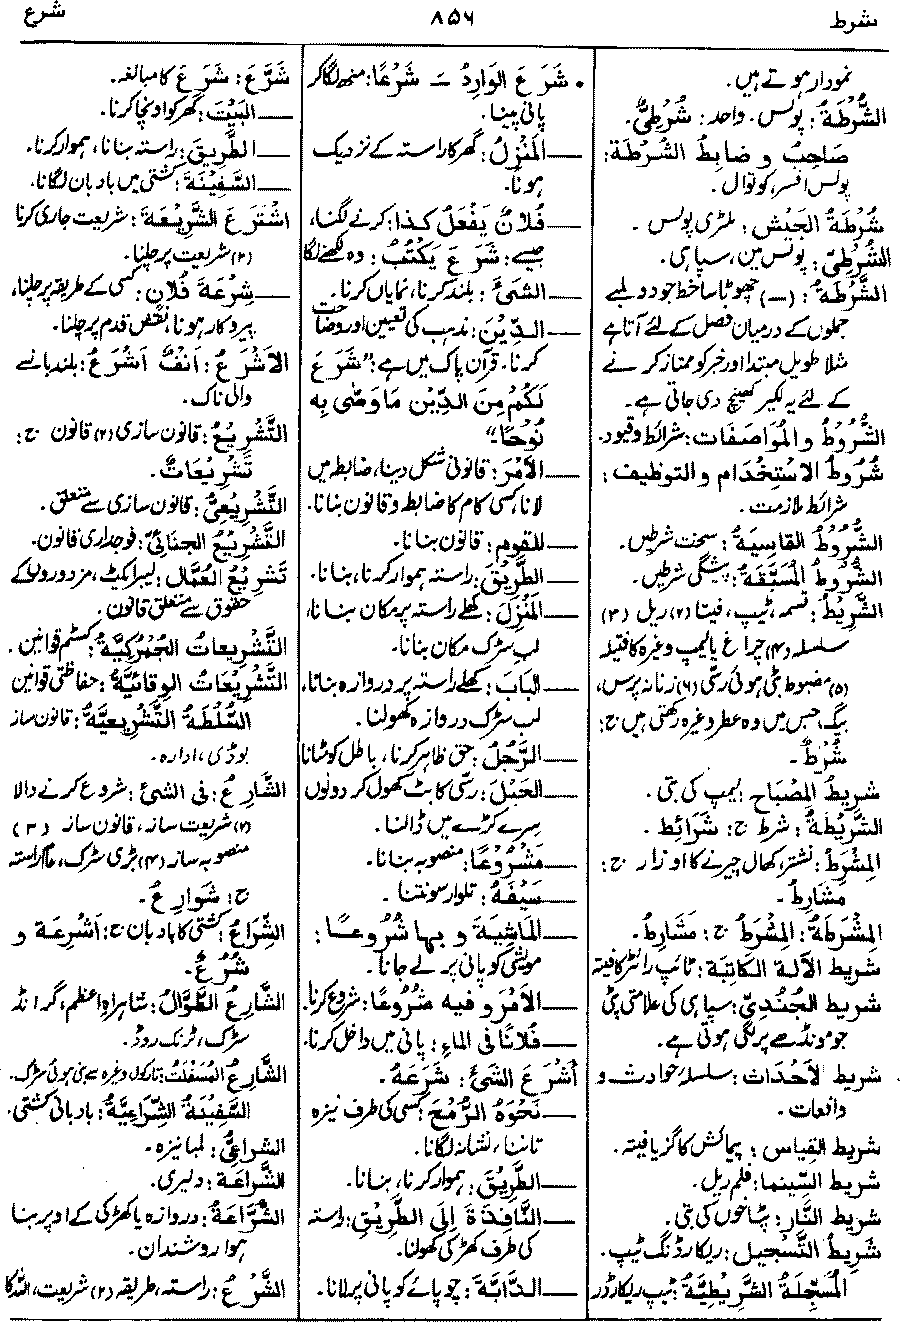 شرط
۸۵۶
شرع
نمودار ہوتے ہیں۔
الشُّرْطَةُ: پولس۔ واحد: شُرْطِیٌّ۔
صَاحِبُ و ضَابِطُ الشُّرْطَة:
پولس افسر، کوتوال۔
شُرْطَةُ الجَیْش: ملٹری پولس۔
الشُّرْطِیّ: پولس مین، سپاہی۔
الشَّرْطَةُ: (—) چھوٹا سا خط جو دو لمبے
جملوں کے درمیان فصل کے لئے آتا ہے
مثلا طویل مبتدا اور خبر کو ممتاز کرنے
کے لئے یہ لکیر کھینچ دی جاتی ہے۔
الشُّرُوطُ والمُوَاصَفَات: شرائط و قیود۔
شُرُوطُ الاسْتِخْدَام والتوظیف:
شرائط ملازمت۔
الشُّرُوطُ القَاسِیَةُ: سخت شرطیں۔
الشُّرُوطُ المُسَبَّقَةُ: پیشگی شرطیں۔
الشَّرِیْطُ: تسمہ، ٹیپ، فیتا (۲) ریل (۳)
سلسلہ (۴) چراغ یا لیمپ وغیرہ کا فتیلہ
(۵) مضبوط بٹی ہوئی رسّی (۶) زنانہ پرس،
بیگ جس میں وہ عطر وغیرہ رکھتی ہیں ج:
شُرُطٌ۔
شریطُ المِصْبَاح: لیمپ کی بتی۔
الشَّرِیْطَةُ: شرط ج: شَرَائِط۔
المِشْرَطُ: نشتر، کھال چیرنے کا اوزار ج:
مشارطُ۔
المِشْرَطَةُ: المِشْرَطُ ج: مشَارِطُ۔
شریط الآلة الکَاتِبَة: ٹائپ رائٹر کا فیتہ
شریط الجُنْدِیّ: سپاہی کی علامتی پٹی
جو مونڈھے پر لگی ہوتی ہے۔
شریط لأحْدَاث: سلسلۂ حوادث و
واقعات۔
شریط القِیَاس: پیمائش کا گز یا فیتہ۔
شریط السِّینما: فلم ریل۔
شریط النَّار: پٹاخوں کی بتی۔
شَرِیطُ التَّسْجِیل: ریکارڈنگ ٹیپ۔
المُسَجِّلَةُ الشَّرِیْطِیَّةُ: ٹیپ ریکارڈر
• شَرَعَ الوَارِدُ ـَ شَرْعًا: منھ لگا کر
پانی پینا۔
— المَنْزِلُ: گھر کا راستہ کے نزدیک
ہونا۔
— فُلانٌ یَفْعَلُ کذا: کرنے لگنا،
جیسے: شَرَعَ یَکْتُبُ: وہ لکھنے لگا
— الشیءَ: بلند کرنا، نمایاں کرنا۔
— الدِّیْنَ: مذہب کی تعیین اور وضاحت
کرنا۔ قرآن پاک میں ہے: "شَرَعَ
لَکُمْ مِنَ الدِّیْنِ مَا وَصّٰی بِه
نُوْحًا"
— الأمْرَ: قانونی شکل دینا، ضابطہ میں
لانا، کسی کام کا ضابطہ و قانون بنانا۔
— للقوم: قانون بنانا۔
— الطَّرِیْقَ: راستہ ہموار کرنا، بنانا۔
— المَنْزِلَ: کھلے راستہ پر مکان بنانا،
لبِ سڑک مکان بنانا۔
— البابَ: کھلے راستہ پر دروازہ بنانا،
لب سڑک دروازہ کھولنا۔
— الرَّجُلُ: حق ظاہر کرنا، باطل کو مٹانا
— الحَبْلَ: رسّی کا بٹ کھول کر دونوں
سرے کڑے میں ڈالنا۔
— مَشْرُوعًا: منصوبہ بنانا۔
— سَیْفَهُ: تلوار سونتنا۔
— المَاشِیَةَ و بها شُرُوعًا:
مویشی کو پانی پر لے جانا۔
— الأمْرَ وفیه شُرُوعًا: شروع کرنا۔
— فُلانًا فی الماءِ: پانی میں داخل کرنا۔
أشْرَعَ الشیءَ: شَرَعَهُ۔
— نَحْوَهُ الرُّمْحَ: کسی کی طرف نیزہ
تاننا، نشانہ لگانا۔
— الطَّرِیْقَ: ہموار کرنا، بنانا۔
— النَّافِذَةَ إلی الطَّرِیْقِ: راستہ
کی طرف کھڑکی کھولنا۔
— الدَّابَّةَ: چوپائے کو پانی پر لانا۔
شَرَّعَ: شَرَعَ کا مبالغہ۔
— البَیْتَ: گھر کو اونچا کرنا۔
— الطَّرِیقَ: راستہ بنانا، ہموار کرنا۔
— السَّفِیْنَةَ: کشتی میں بادبان لگانا۔
اشْتَرَعَ الشَّرِیْعَةَ: شریعت جاری کرنا
(۲) شریعت پر چلنا۔
— شِرْعَةَ فُلانٍ: کسی کے طریقہ پر چلنا،
پیروکار ہونا، نقش قدم پر چلنا۔
الأشْرَعُ: أنْفٌ أشْرَعُ: بلند بانسے
والی ناک۔
التَّشْرِیْعُ: قانون سازی (۲) قانون ج:
تَشْرِیْعَاتٌ۔
التَّشْرِیْعِیُّ: قانون سازی سے متعلق۔
التَّشْرِیْعُ الجِنَائیُّ: فوجداری قانون۔
تَشْرِیْعُ العُمَّال: لیبر ایکٹ، مزدوروں کے
حقوق سے متعلق قانون۔
التَّشْرِیعاتُ الجُمْرُکِیَّةُ: کسٹم قوانین۔
التَّشْرِیْعَاتُ الوِقَائِیَّةُ: حفاظتی قوانین
السُّلْطَةُ التَّشْرِیعیَّةُ: قانون ساز
بوڈی، ادارہ۔
الشَّارِعُ: فی الشیء: شروع کرنے والا
(۲) شریعت ساز، قانون ساز (۳)
منصوبہ ساز (۴) بڑی سڑک، عام راستہ
ج: شَوَارِعُ۔
الشِّرَاعُ: کشتی کا بادبان ج: أشْرِعَة و
شُرُعٌ۔
الشَّارِعُ الطُّوَّالُ: شاہراہِ اعظم، گرانڈ
سڑک، ٹرنک روڈ۔
الشَّارِعُ المُسَفْلَتُ: تارکول وغیرہ سے بنی ہوئی سڑک۔
السَّفِیْنَةُ الشِّرَاعِیَّةُ: بادبانی کشتی۔
الشراعیُّ: لمبا نیزہ۔
الشَّرَاعَةُ: دلیری۔
الشُّرَّاعَةُ: دروازہ یا کھڑکی کے اوپر بنا
ہوا روشندان۔
الشَّرْعُ: راستہ، طریقہ (۲) شریعت، اللہ کا